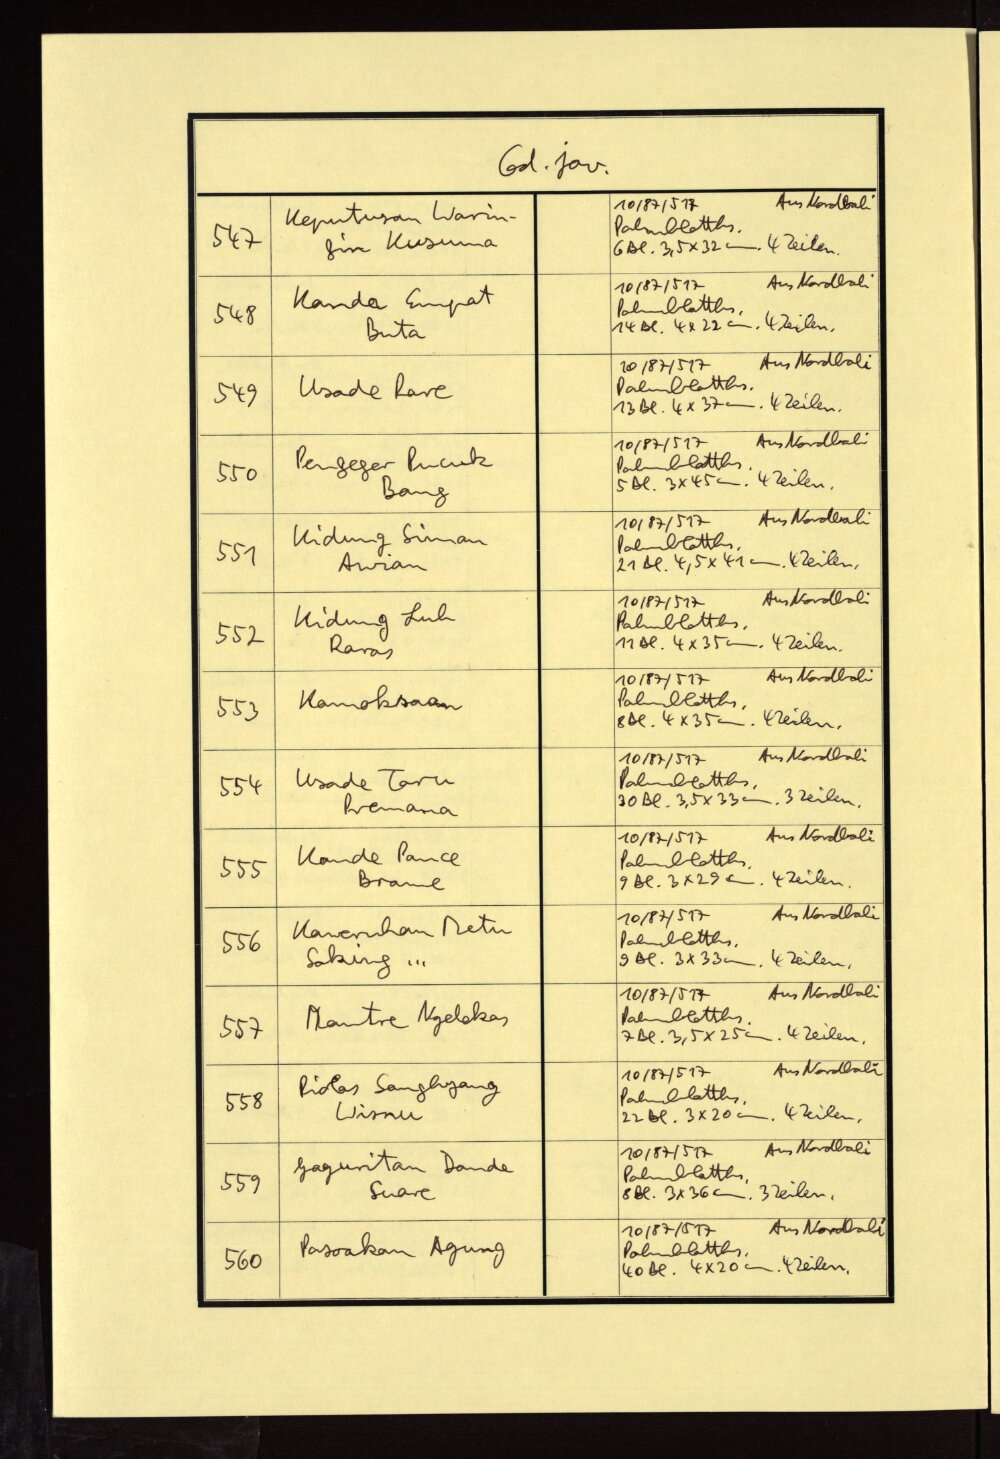 Cod. jav.
547
Keputusan Warin-
gin Kusuma
10/87/517 Aus Nordbali
Palmblatths.
6 Bl. 3,5 x 32 cm. 4 Zeilen.
548
Kanda Empat
Buta
10/87/517 Aus Nordbali
Palmblatths.
14 Bl. 4 x 22 cm. 4 Zeilen.
549
Usade Rare
10/87/517 Aus Nordbali
Palmblatths.
13 Bl. 4 x 37 cm. 4 Zeilen.
550
Pengeger Pucuk
Bang
10/87/517 Aus Nordbali
Palmblatths.
5 Bl. 3 x 45 cm. 4 Zeilen.
551
Kidung Siman
Awian
10/87/517 Aus Nordbali
Palmblatths.
21 Bl. 4,5 x 41 cm. 4 Zeilen.
552
Kidung Luh
Raras
10/87/517 Aus Nordbali
Palmblatths.
11 Bl. 4 x 35 cm. 4 Zeilen.
553
Kamoksaan
10/87/517 Aus Nordbali
Palmblatths.
8 Bl. 4 x 35 cm. 4 Zeilen.
554
Usade Taru
Premana
10/87/517 Aus Nordbali
Palmblatths.
30 Bl. 3,5 x 33 cm. 3 Zeilen.
555
Kande Pance
Brame
10/87/517 Aus Nordbali
Palmblatths.
9 Bl. 3 x 29 cm. 4 Zeilen.
556
Kaweruhan Metu
Saking ...
10/87/517 Aus Nordbali
Palmblatths.
9 Bl. 3 x 33 cm. 4 Zeilen.
557
Mantre Ngelekas
10/87/517 Aus Nordbali
Palmblatths.
7 Bl. 3,5 x 25 cm. 4 Zeilen.
558
Piolas Sanghyang
Wisnu
10/87/517 Aus Nordbali
Palmblatths.
22 Bl. 3 x 20 cm. 4 Zeilen.
559
Gaguritan Dande
Suare
10/87/517 Aus Nordbali
Palmblatths.
8 Bl. 3 x 36 cm. 3 Zeilen.
560
Pasoakan Agung
10/87/517 Aus Nordbali
Palmblatths.
40 Bl. 4 x 20 cm. 4 Zeilen.